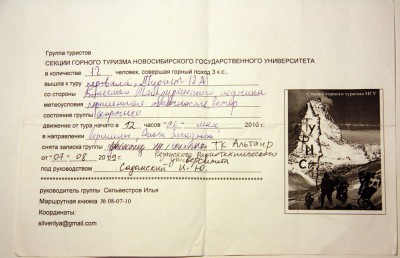 Группа туристов
СЕКЦИИ ГОРНОГО ТУРИЗМА НОВОСИБИРСКОГО ГОСУДАРСТВЕННОГО УНИВЕРСИТЕТА
в количестве 12 человек, совершая горный поход 3 к.с.,
вышла к туру перевала Турист (2А)
со стороны ледника
метеоусловия ветер
состояние группы хорошее
движение от тура начато в 12 часов мая 2010 г.
в направлении вершины
снята записка группы ТК Альтаир
университета
от 07-08 2009г.
под руководством И. Ю.
руководитель группы Сильвестров Илья
Маршрутная книжка № 08-07-10
Координаты:
silverilya@gmail.com
Секция горного туризма НГУ